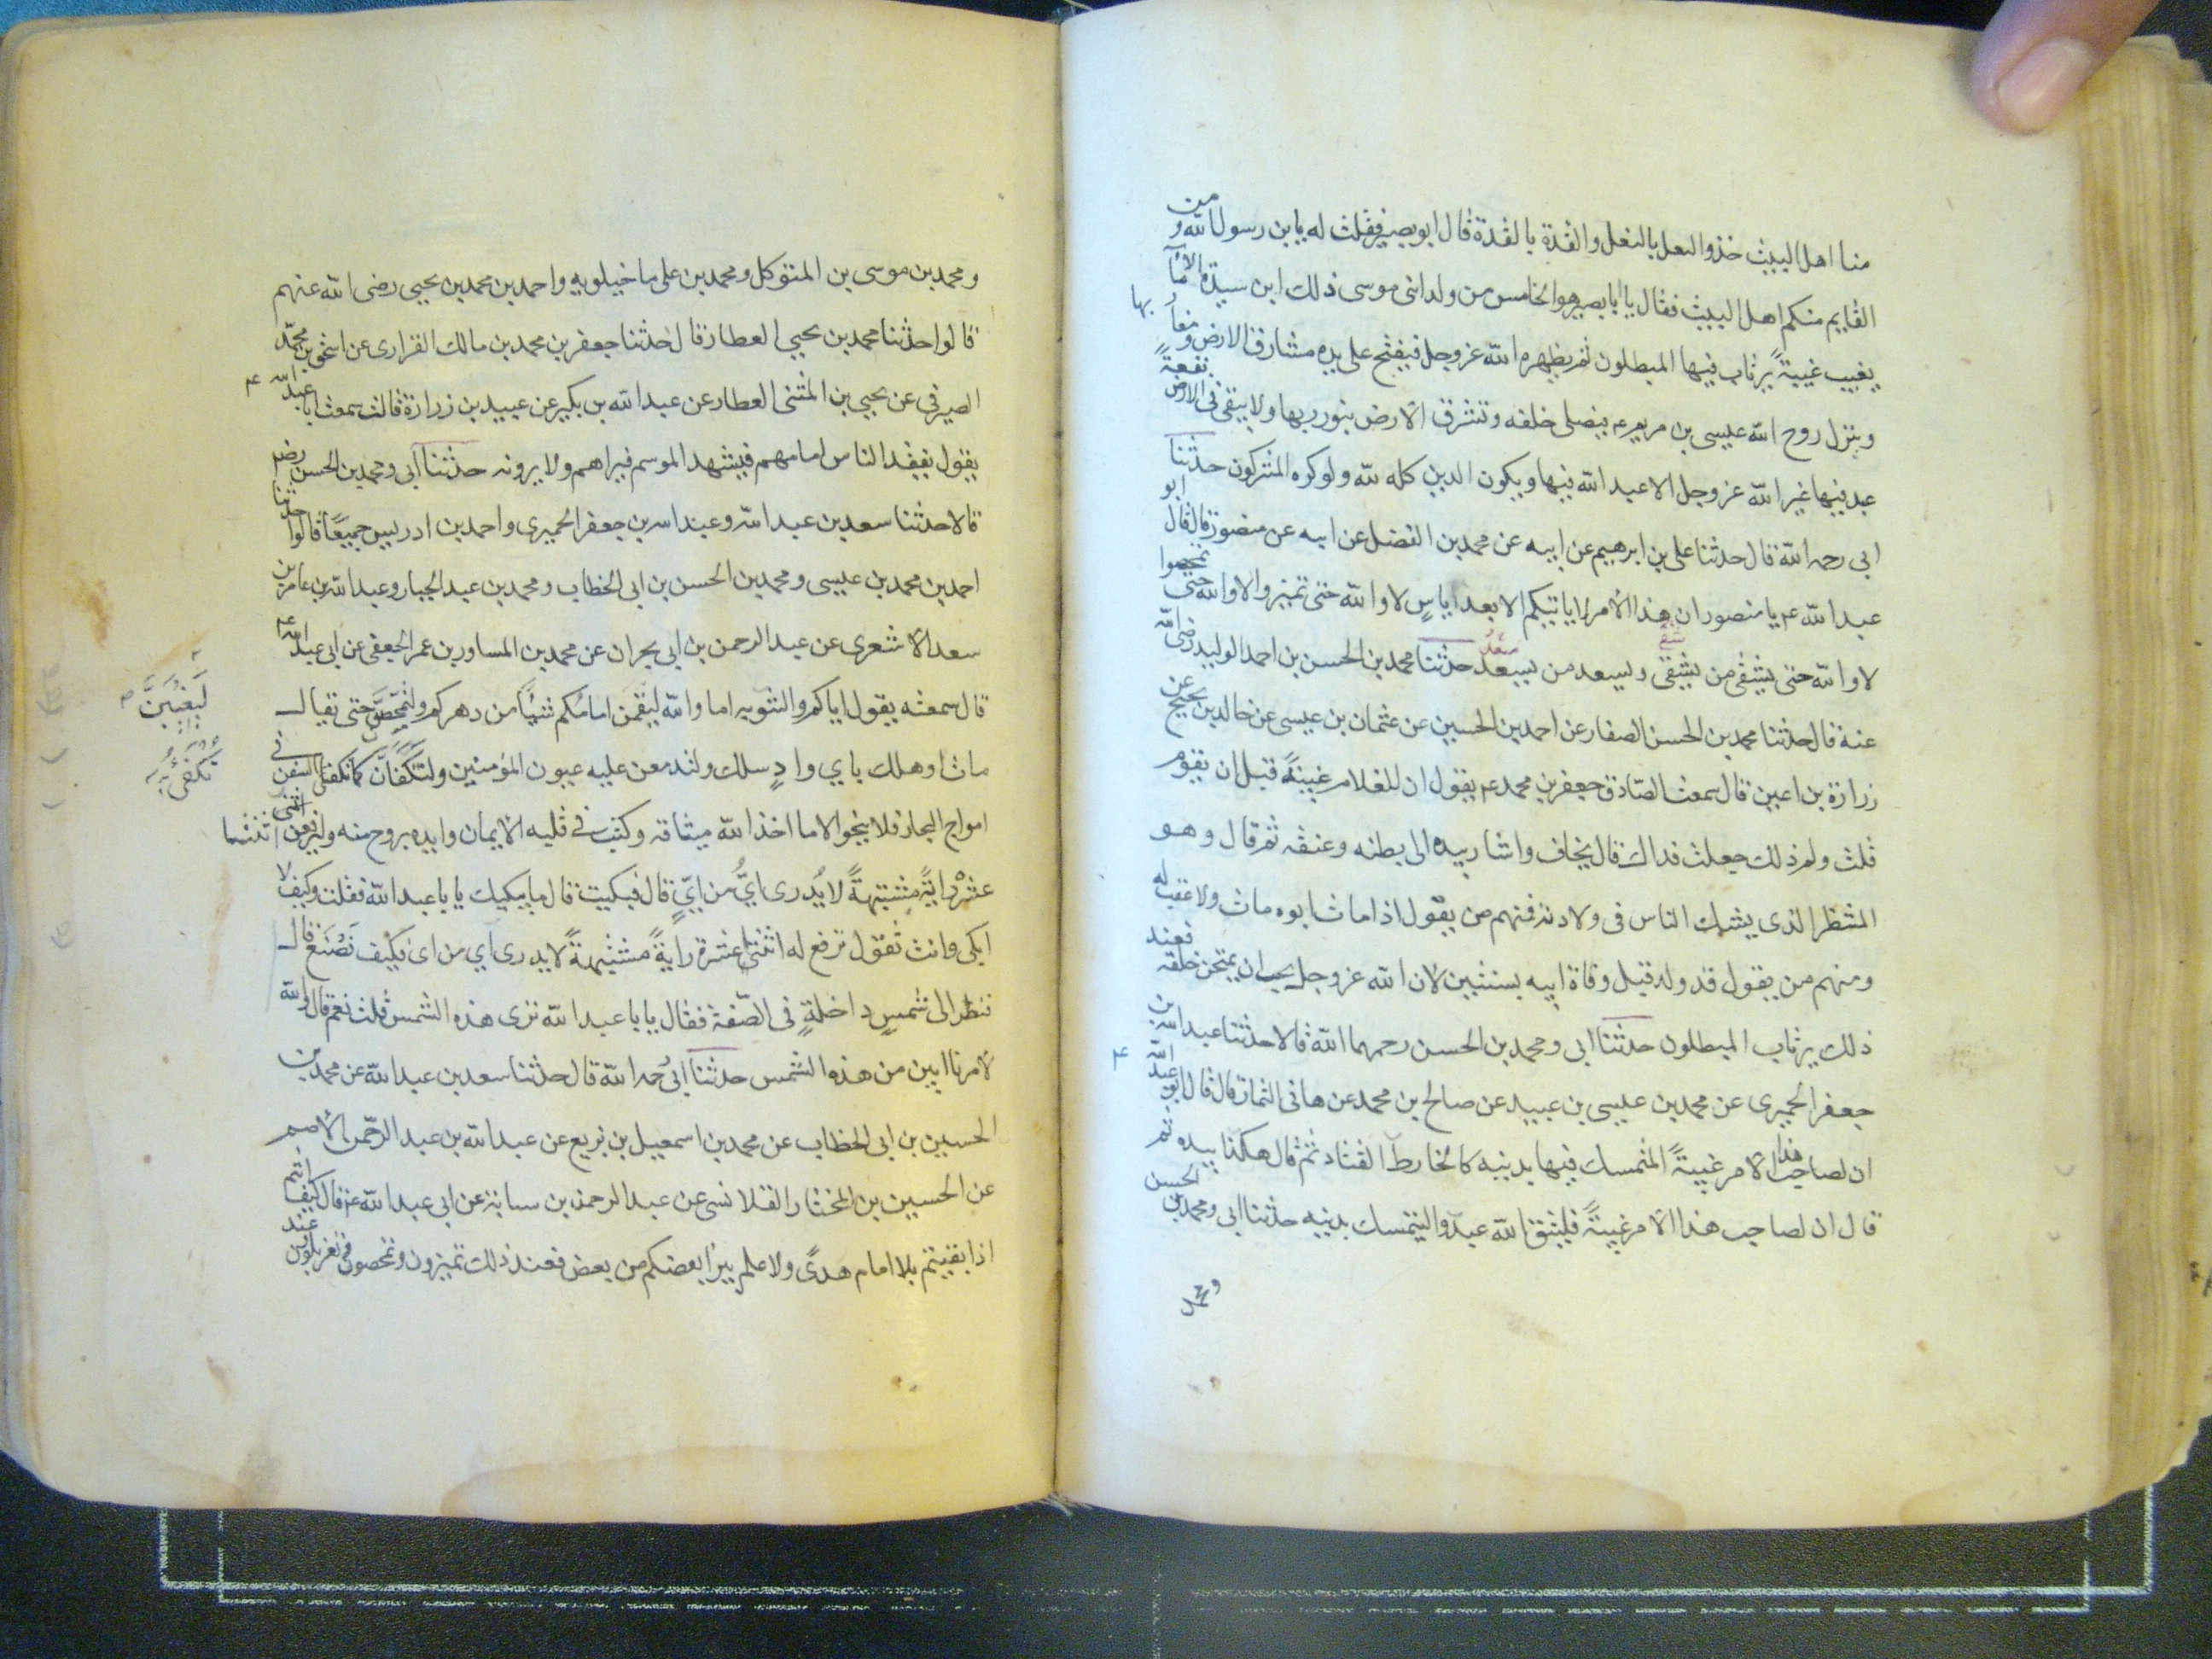 منا اهل البيت حذو النعل بالنعل والقذة بالقذة قال ابوبصير فقلت له يا بن رسول الله و من
القايم منكم اهل البيت فقال يا ابا بصير هو الخامس من ولد ابنى موسى ذلك ابن سيدة الاماء
يغيب غيبةً يرتاب فيها المبطلون ثم يظهره الله عز وجل فيفتح على يده مشارق الارض و مغاربها
وينزل روح الله عيسى بن مريم ع فيصلى خلفه وتشرق الارض بنور ربها ولا يبقى فى الارض بقعةً
عبد فيها غير الله عز وجل الا عبد الله فيها ويكون الدين كله لله ولو كره المشركون حدثنا
ابى رحمه الله قال حدثنا على بن ابرهيم عن ابيه عن محمد بن الفضل عن ابيه عن منصور قال قال ابو
عبد الله ع يا منصور ان هذا الامر لا ياتيكم الا بعد اياسٍ لا والله حتى تميزوا لا والله حتى
لا والله حتى يشقى من يشقى ويسعد من يسعد حدثنا محمد بن الحسن بن احمد الوليد رضى الله
عنه قال حدثنا محمد بن الحسن الصفار عن احمد بن الحسين عن عثمان بن عيسى عن خالد بن نجيح عن
زرارة بن اعين قال سمعت الصادق جعفر بن محمد ع يقول ان للغلام غيبةً قبل ان يقوم
قلت ولم ذلك جعلت فداك قال يخاف واشار بيده الى بطنه وعنقه ثم قال وهو
المنتظر الذى يشك الناس فى ولادته فمنهم من يقول اذا مات ابوه مات ولا عقب له
ومنهم من يقول قد ولد قبل وفاة ابيه بسنتين لان الله عز وجل يجب ان يمتحن خلقه فعند
ذلك يرتاب المبطلون حدثنا ابى ومحمد بن الحسن رحمهما الله قالا حدثنا عبد الله بن
جعفر الحميرى عن محمد بن عيسى بن عبيد عن صالح بن محمد عن هانى التمار قال قال ابو عبد الله ع
ان لصاحب هذا الامر غيبةً المتمسك فيها بدينه كالخارط القتاد ثم قال هكذا بيده ثم
قال ان لصاحب هذا الامر غيبةً فليتق الله عبدٌ وليتمسك بدينه حدثنا ابى ومحمد بن الحسن
ومحمد
ومحمد بن موسى بن المتوكل ومحمد بن على ماجيلويه واحمد بن محمد بن يحيى رضى الله عنهم
قالوا حدثنا محمد بن يحيى العطار قال حدثنا جعفر بن محمد بن مالك الفزارى عن اسحق بن محمد
الصيرفى عن يحيى بن المثنى العطار عن عبد الله بن بكير عن عبيد بن زرارة قال سمعت ابا عبد الله ع
يقول يفقد الناس امامهم فيشهد الموسم فيراهم ولا يرونه حدثنا ابى ومحمد بن الحسن رضم
قالا حدثنا سعد بن عبد الله وعبد الله بن جعفر الحميرى واحمد بن ادريس جميعًا قالوا حدثنا
احمد بن محمد بن عيسى ومحمد بن الحسن بن ابى الخطاب ومحمد بن عبد الجبار وعبد الله بن عامر بن
سعد الاشعرى عن عبد الرحمن بن ابى نجران عن محمد بن المساور بن عمر الجعفى عن ابى عبد الله ع
قال سمعته يقول اياكم والتنويه اما والله ليقمن امامكم شيئًا من دهركم ولتمحصن حتى يقال
لَيَغِيبَنَّ
مات او هلك باي وادٍ سلك ولتدمعن عليه عيون المؤمنين ولتكفأن كما تكفئ السفن فى
تكفى
امواج البحار فلا ينجوا الا ما اخذ الله ميثاقه وكتب فى قلبه الايمان وايده بروح منه ولترفعن اثنتى
اثنتا
عشرة رايةً مشتبهةً لا يُدرى ايٌّ من ايٍّ قال فبكيت قال ما يبكيك يا با عبد الله فقلت وكيف لا
ابكى وانت تقول ترفع له اثنتى عشرة رايةً مشتبهةً لا يدرى اي من اى فكيف نَصْنَع قال
فنظر الى شمسٍ داخلةٍ فى الصّفة فقال يا با عبد الله ترى هذه الشمس قلت نعم قال والله
لامرنا ابين من هذه الشمس حدثنا ابى رحمه الله قال حدثنا سعد بن عبد الله عن محمد بن
الحسين بن ابى الخطاب عن محمد بن اسمعيل بن بزيع عن عبد الله بن عبد الرحمن الاصم
عن الحسين بن المختار القلانسى عن عبد الرحمن بن سيابة عن ابى عبد الله ع قال كيف انتم
اذا بقيتم بلا امام هدًى ولا علم يبرا بعضكم من بعض فعند ذلك تميزون وتمحصون وتغربلون وعند